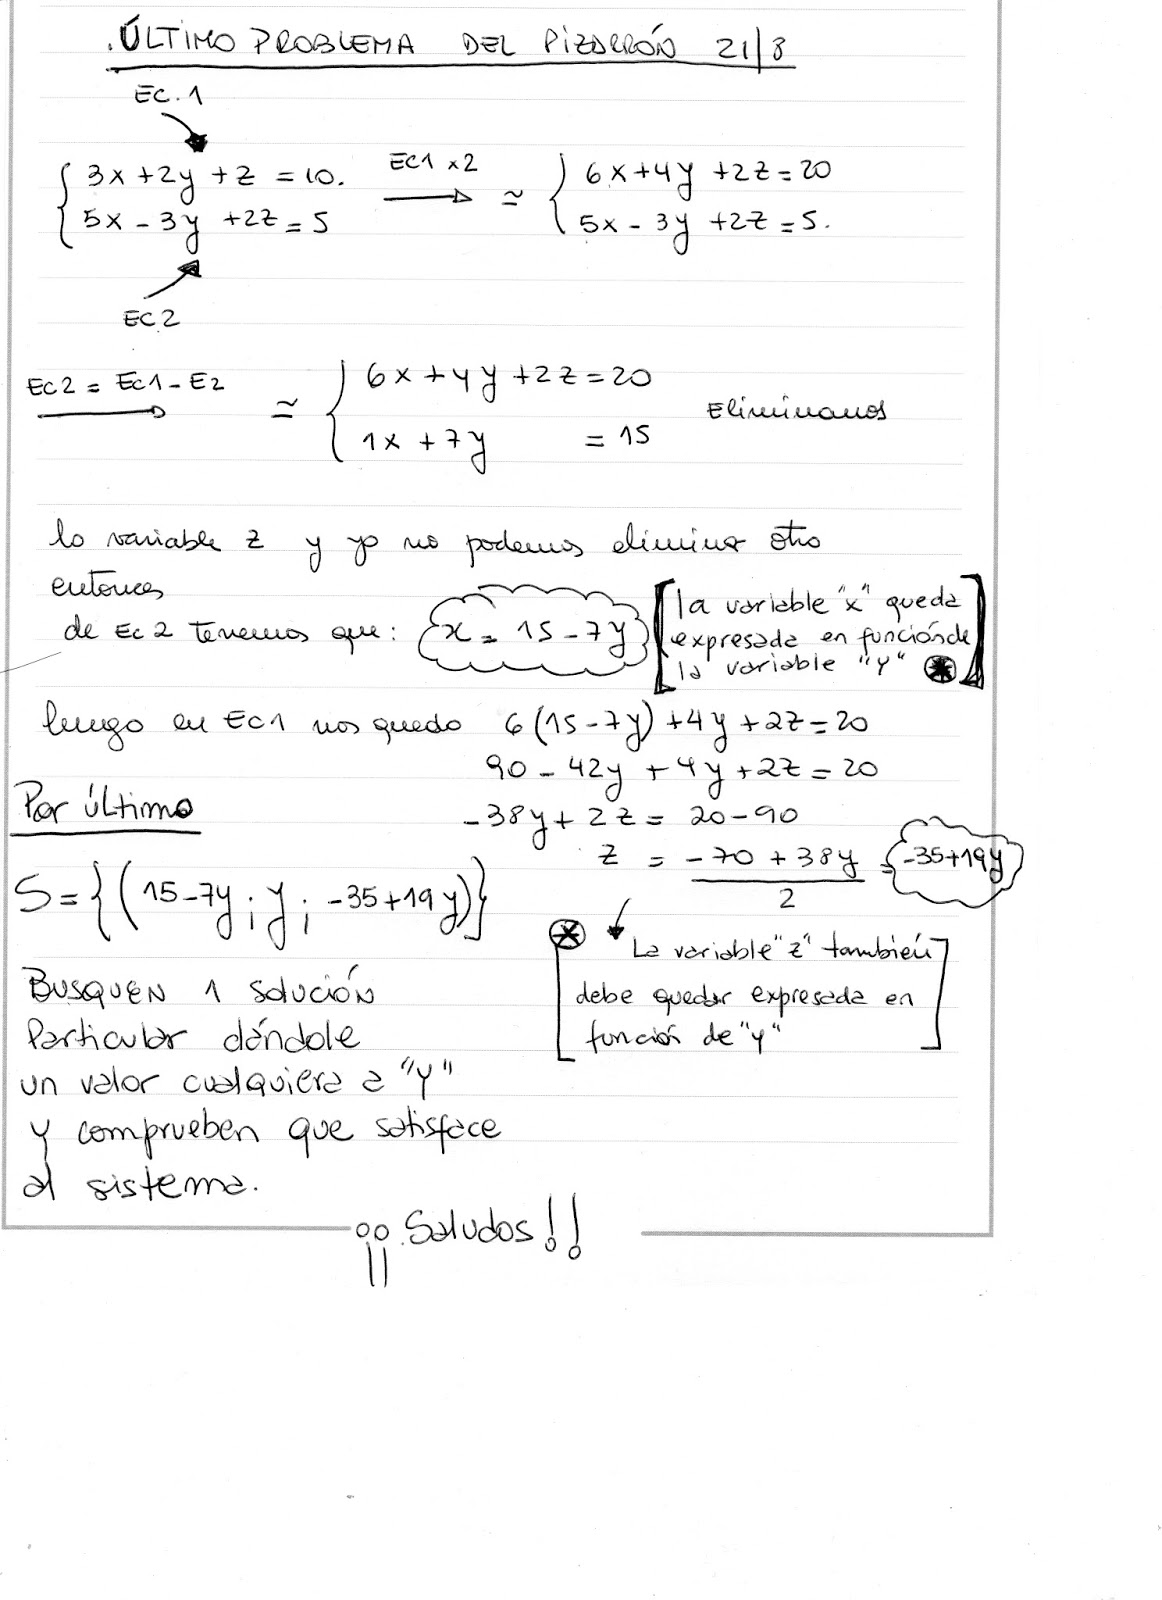 .ÚLTIMO PROBLEMA DEL PIZARRÓN 21/8
EC.1
{ 3x+2y+z=10.
{ 5x-3y+2z=5
EC1 x2
≃ { 6x+4y+2z=20
{ 5x-3y+2z=5.
EC2
EC2 = EC1-E2
≃ { 6x+4y+2z=20
{ 1x+7y =15
Eliminamos
la variable z y ya no podemos eliminar otra
entonces
de Ec 2 tenemos que: x = 15-7y
[la variable "x" queda
expresada en función de
la variable "y" ⊛]
luego en EC1 nos queda 6(15-7y)+4y+2z=20
90-42y+4y+2z=20
-38y+2z= 20-90
z = (-70+38y)/2 = -35+19y
Por último
S={(15-7y; y; -35+19y)}
⊛ [La variable "z" también
debe quedar expresada en
función de "y"]
BUSQUEN 1 solución
Particular dándole
un valor cualquiera a "y"
y comprueben que satisface
al sistema.
¡¡ Saludos!!